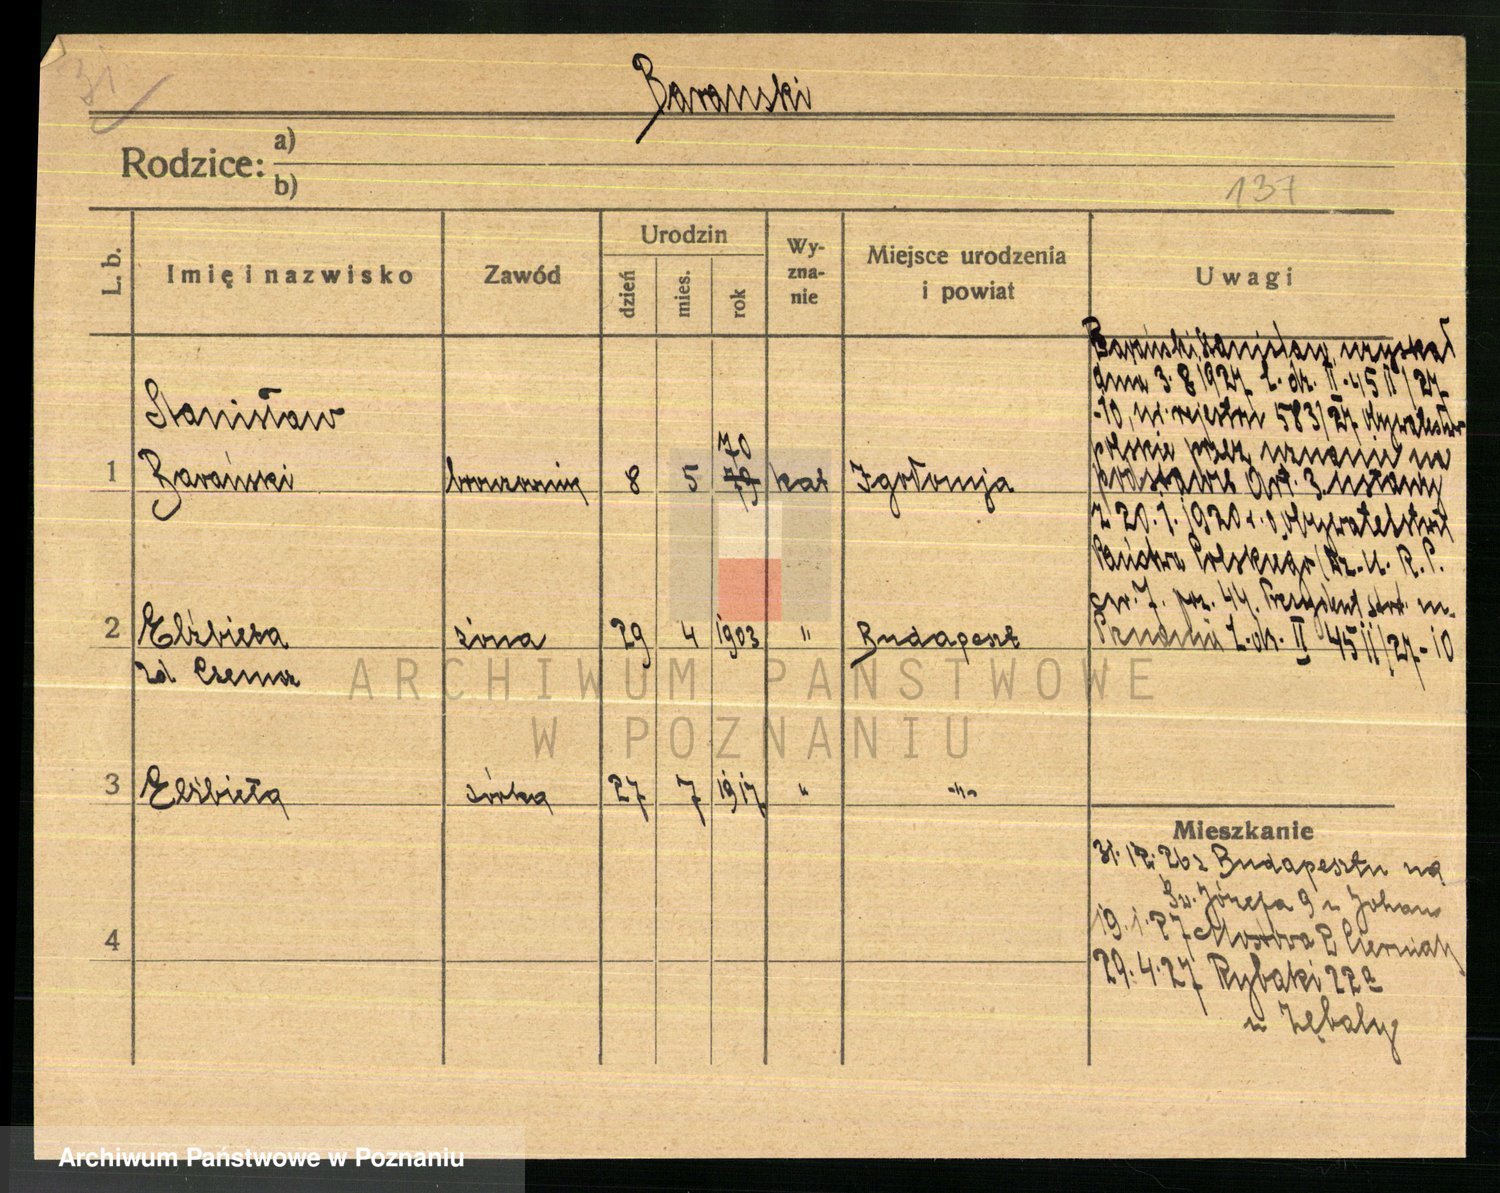 31
Baranski
Rodzice: a)
b)
137
L. b.
Imię i nazwisko
Zawód
Urodzin
dzień
mies.
rok
Wy-
zna-
nie
Miejsce urodzenia
i powiat
Uwagi
Barański Stanisław uzyskał
dnia 3. 8 1927 L. dz. II-45 II/27
-10, nr. rejestru 583/27
polskie przez uznanie na
podstawie Art. 3. ustawy
z 20. 1. 1920 r. o obywatelstwie
Państwa Polskiego (Dz. U. R. P.
nr. 7. poz. 44. Prezydent m.
Poznania L. dz. II 45 II/27-10
Stanisław
70
1 Barański 8 5 kat Igołomja
2 Elżbieta żona 29 4 1903 " Budapeszt
zd Csema
3 Elżbieta córka 27 7 1917 " -"-
Mieszkanie
31. 12. 26 z Budapesztu na
Św. Józefa 9 u Johan
19. 1. 27 Mostowa 2 Cierniak
29. 4. 27 Rybaki 22a
u Zębaly
4
ARCHIWUM PAŃSTWOWE
W POZNANIU
Archiwum Państwowe w Poznaniu